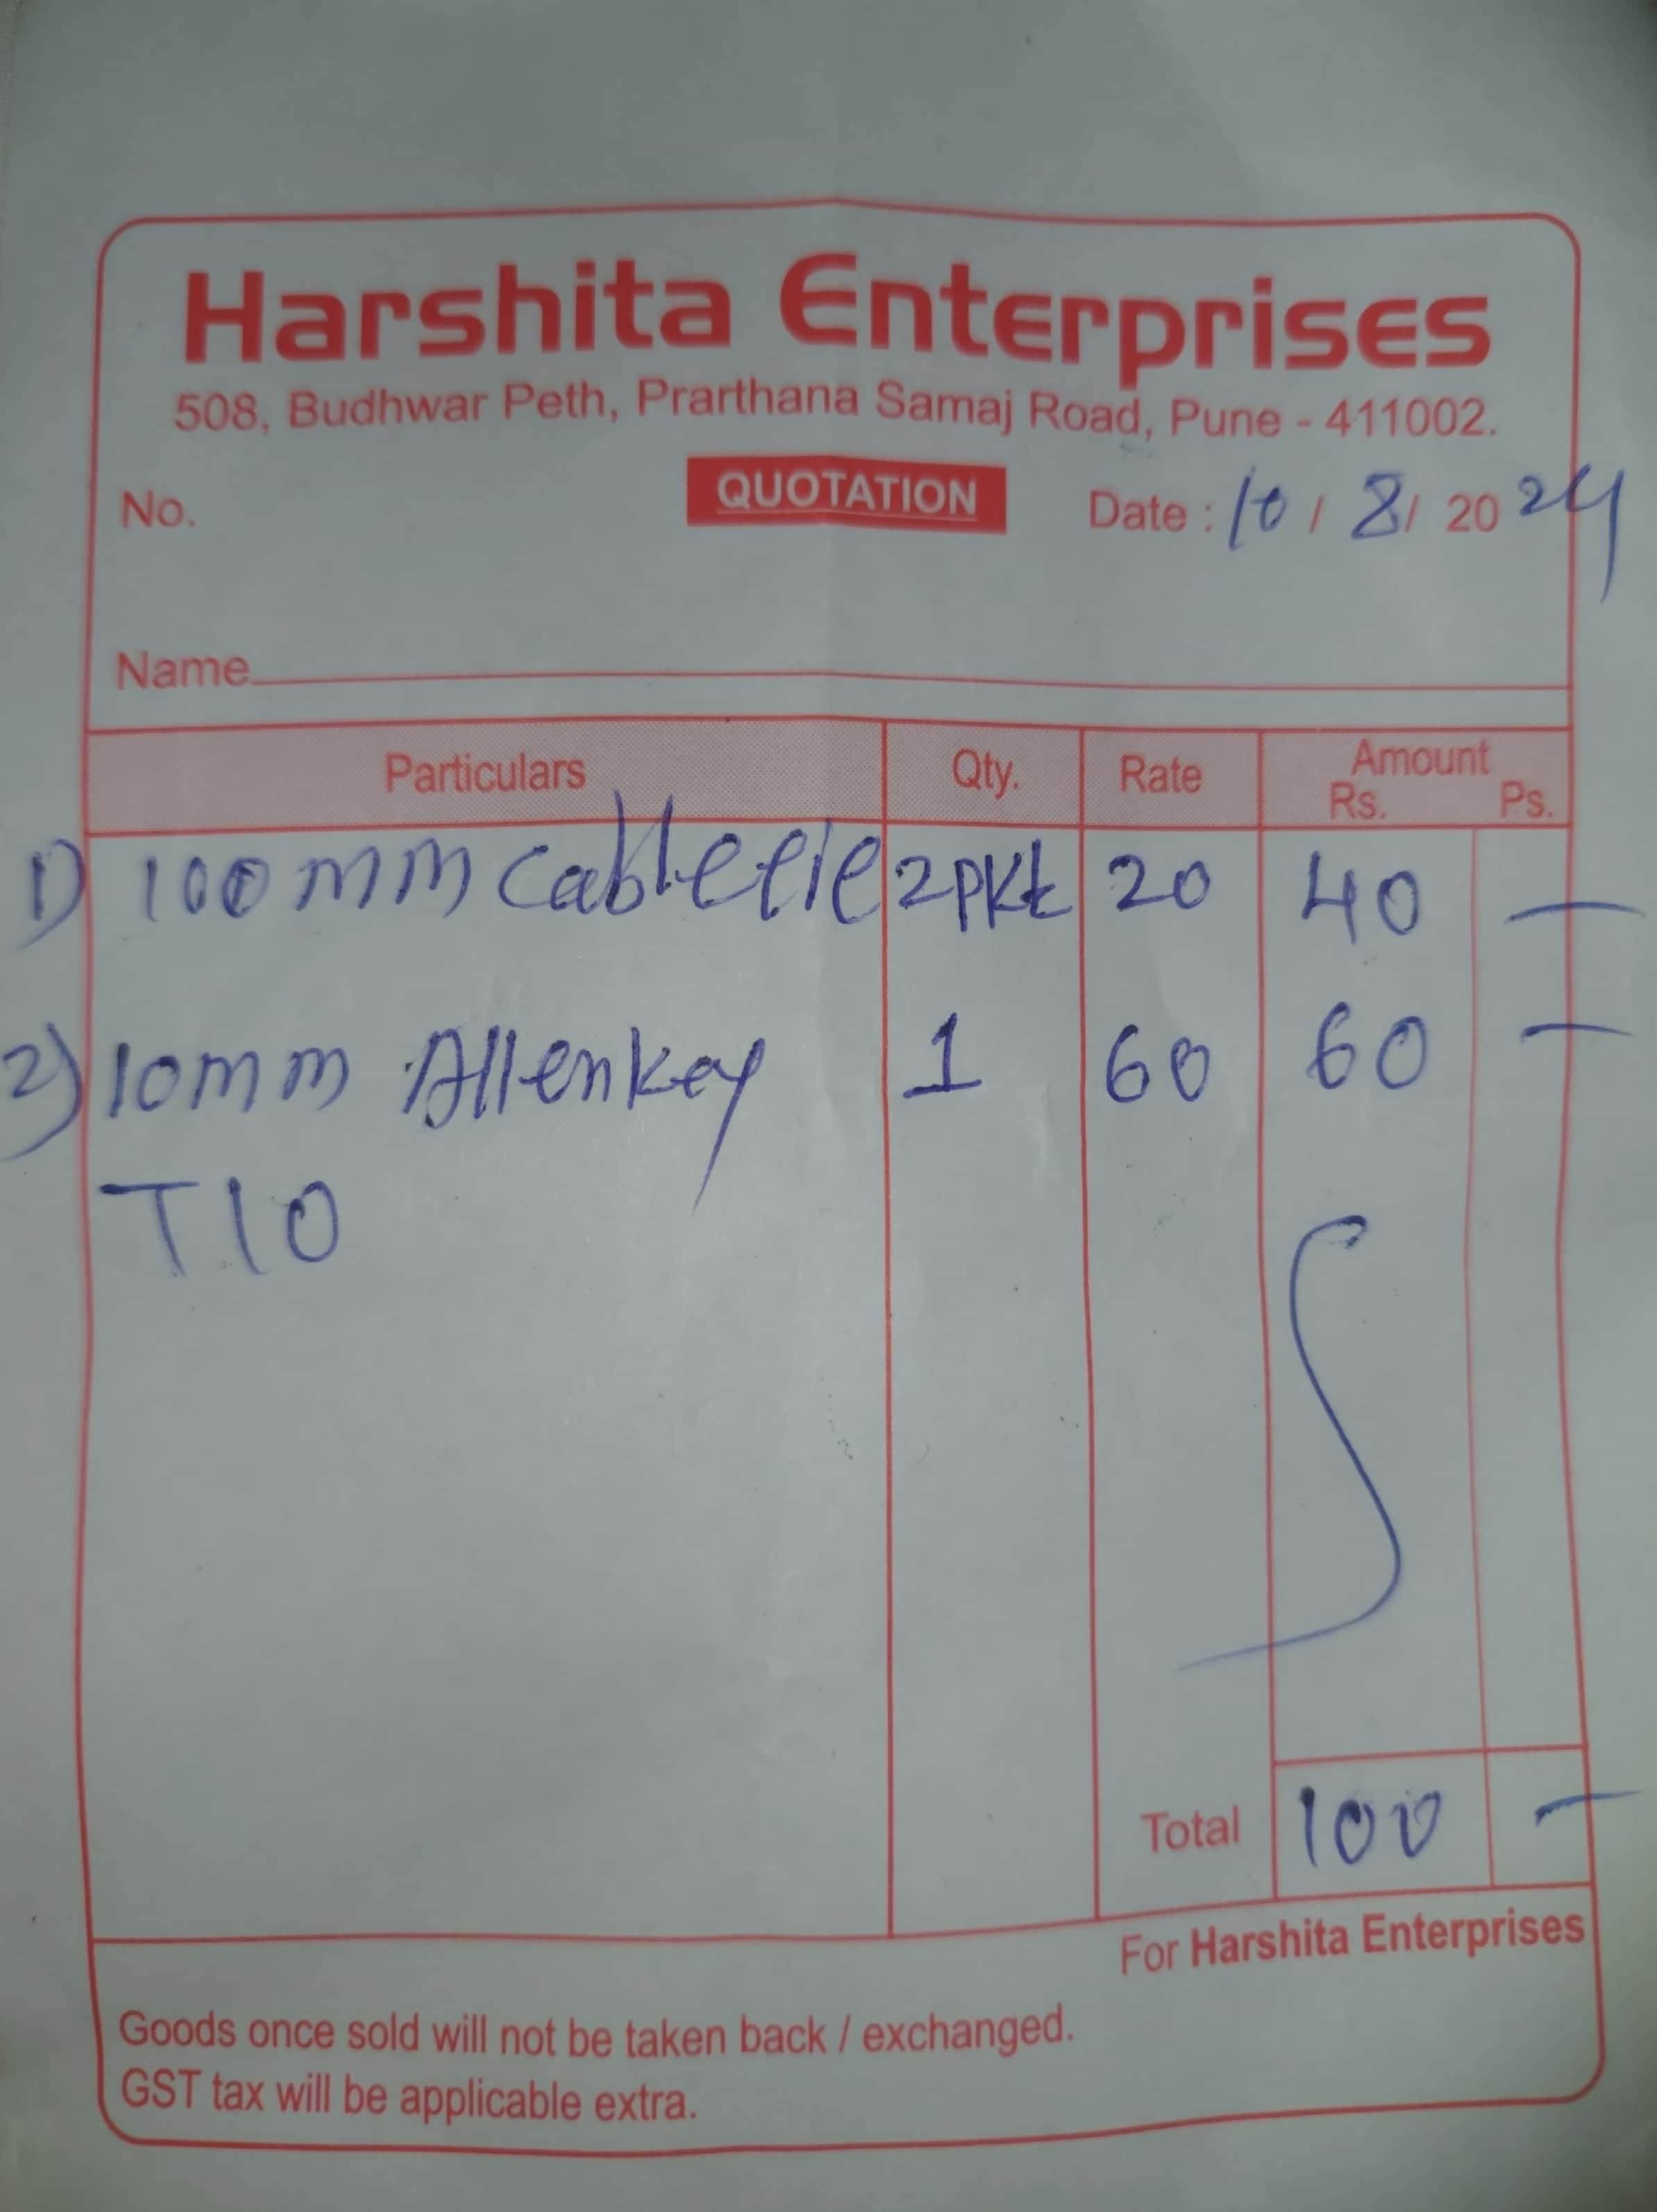 Harshita Enterprises
508, Budhwar Peth, Prarthana Samaj Road, Pune - 411002.
No. QUOTATION Date : 10 / 8 / 2024
Name
Particulars Qty. Rate Amount
Rs. Ps.
1) 100 mm Cable tie 2 pkt 20 40 —
2) 10mm Allenkey 1 60 60 —
T10
Total 100 —
For Harshita Enterprises
Goods once sold will not be taken back / exchanged.
GST tax will be applicable extra.